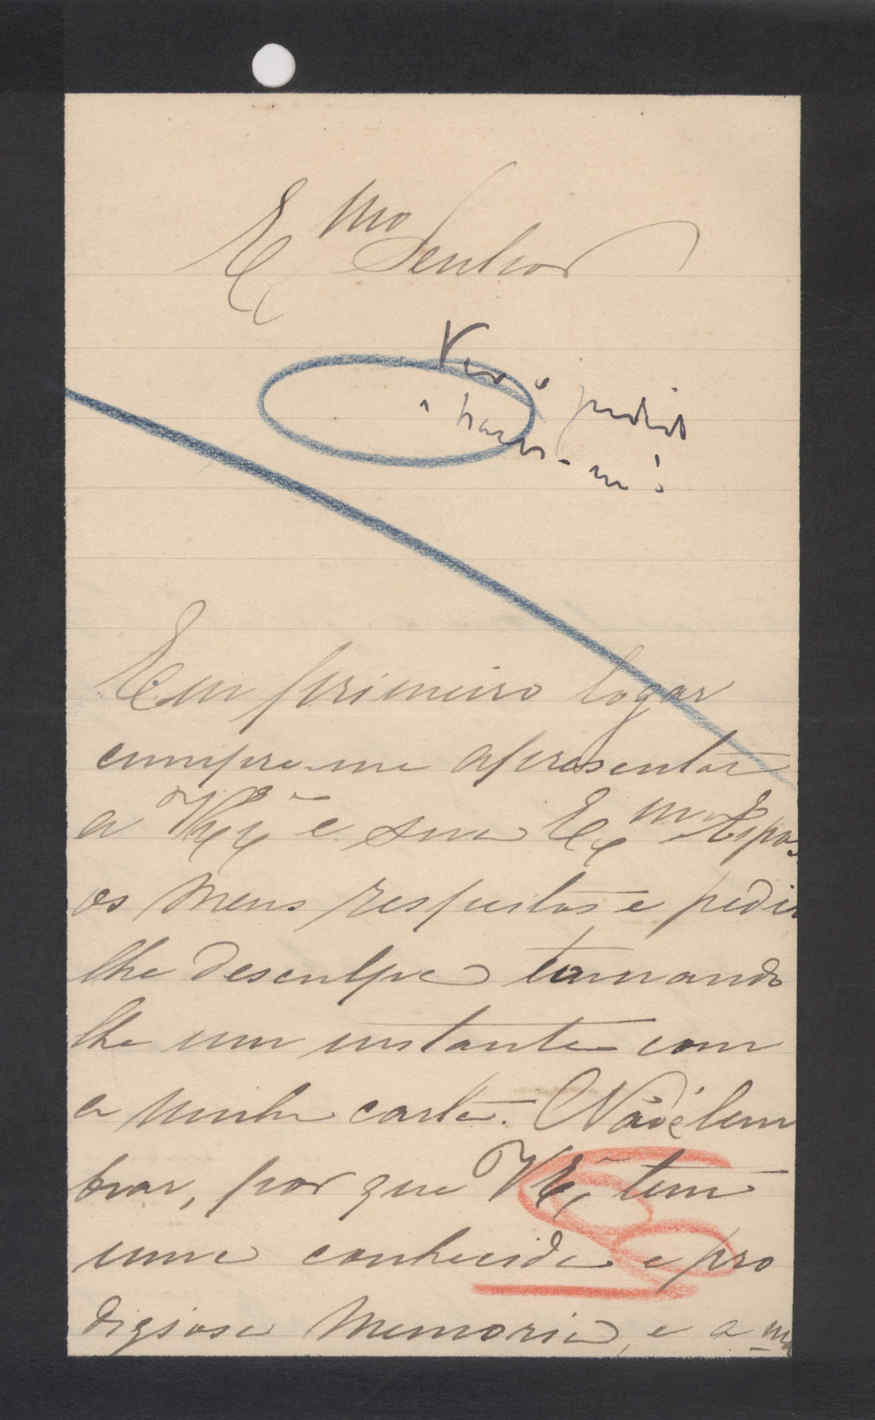 Exmo Senhor
Ver o pedido
Em primeiro logar
cumpre-me apresentar
a V. Exª e sua Exma Espo
os meus respeitos e pedir
lhe desculpe tomando
lhe um instante com
a minha carta. Não é lem
brar, por que V. Exª tem
uma conhecida e pro
digiosa memoria, e a m